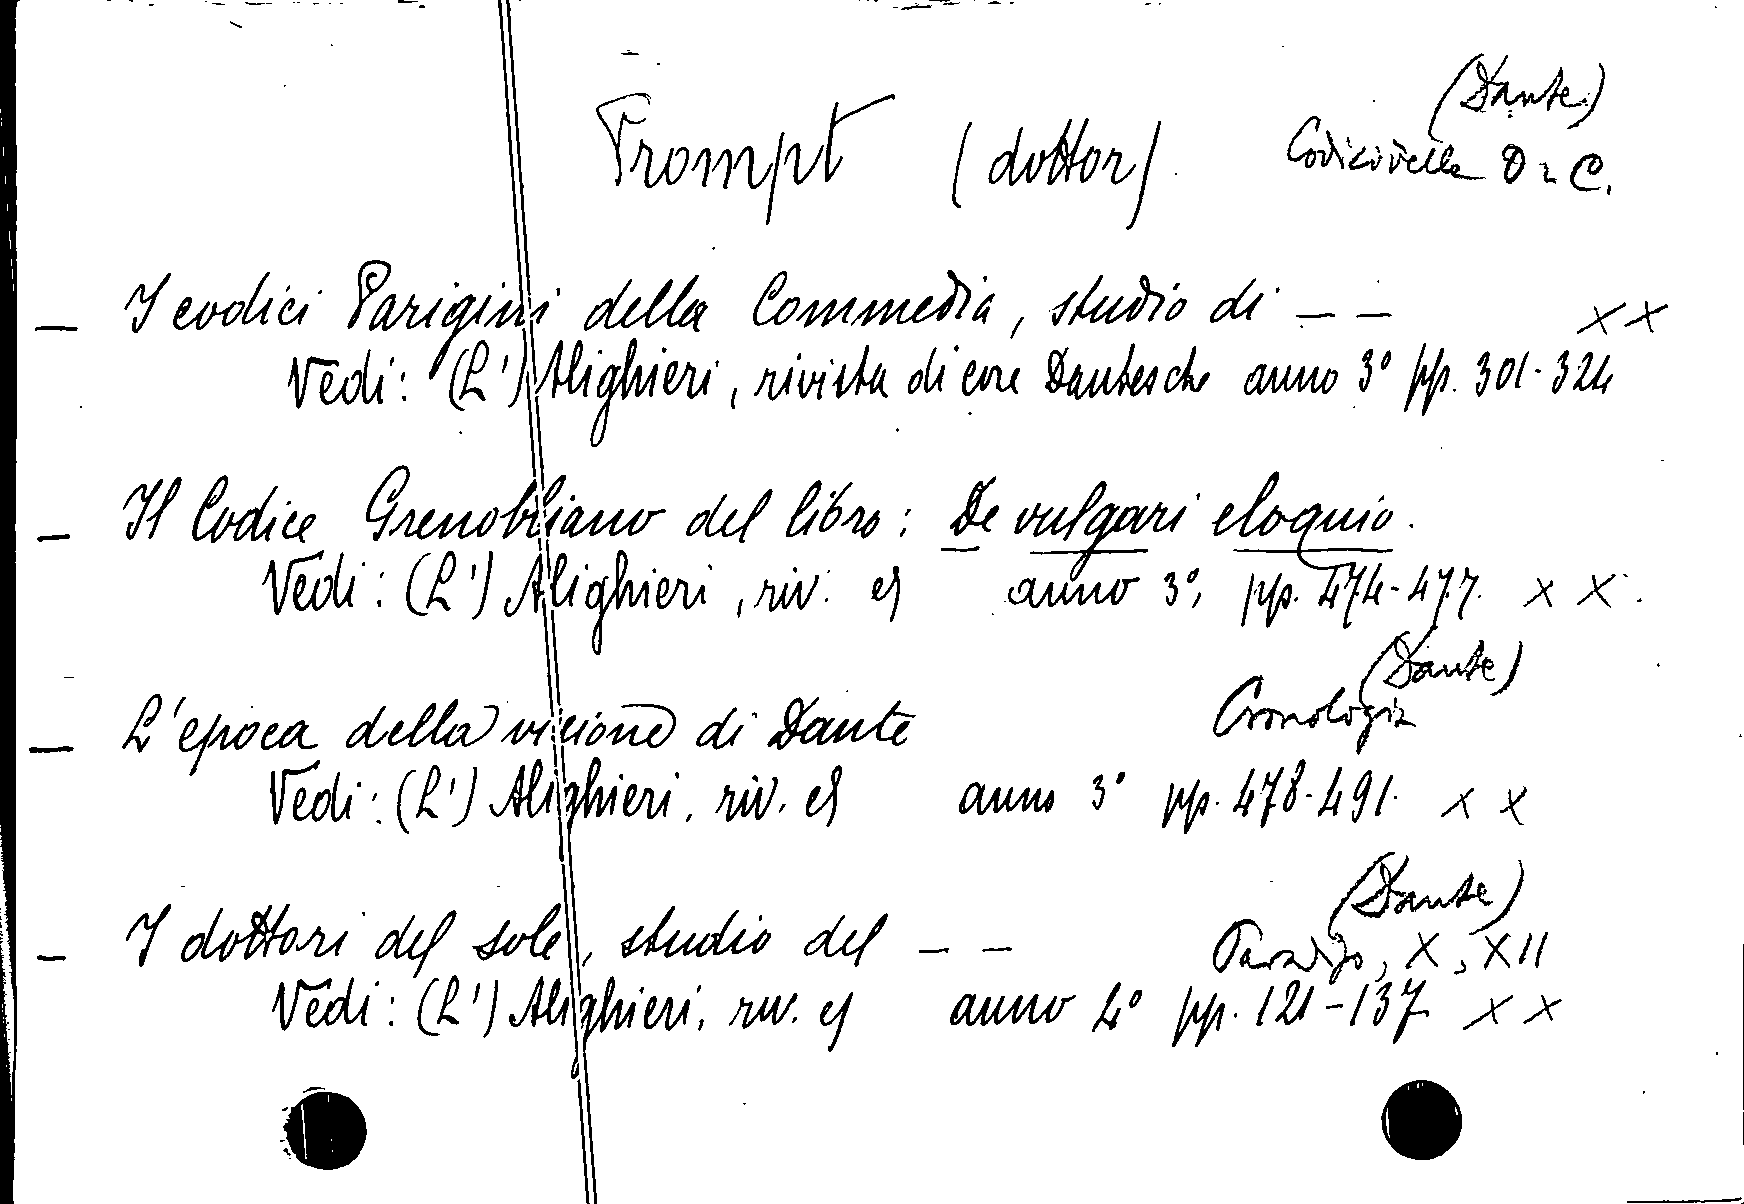 (Dante)
Prompt (dottor) Codici della D. C.
— I codici Parigini della Commedia, studio di — — x x
Vedi: (L') Alighieri, rivista di cose Dantesche anno 3° pp. 301-324
— Il Codice Grenobliano del libro: De vulgari eloquio.
Vedi: (L') Alighieri, riv. cf anno 3°, pp. 474-477. x x.
(Dante)
— L'epoca della visione di Dante Cronologia
Vedi: (L') Alighieri, riv. cf anno 3° pp. 478-491. x x
(Dante)
— I dottori del sole, studio del — — Paradiso, X, XII
Vedi: (L') Alighieri, riv. cf anno 4° pp. 121-137 x x